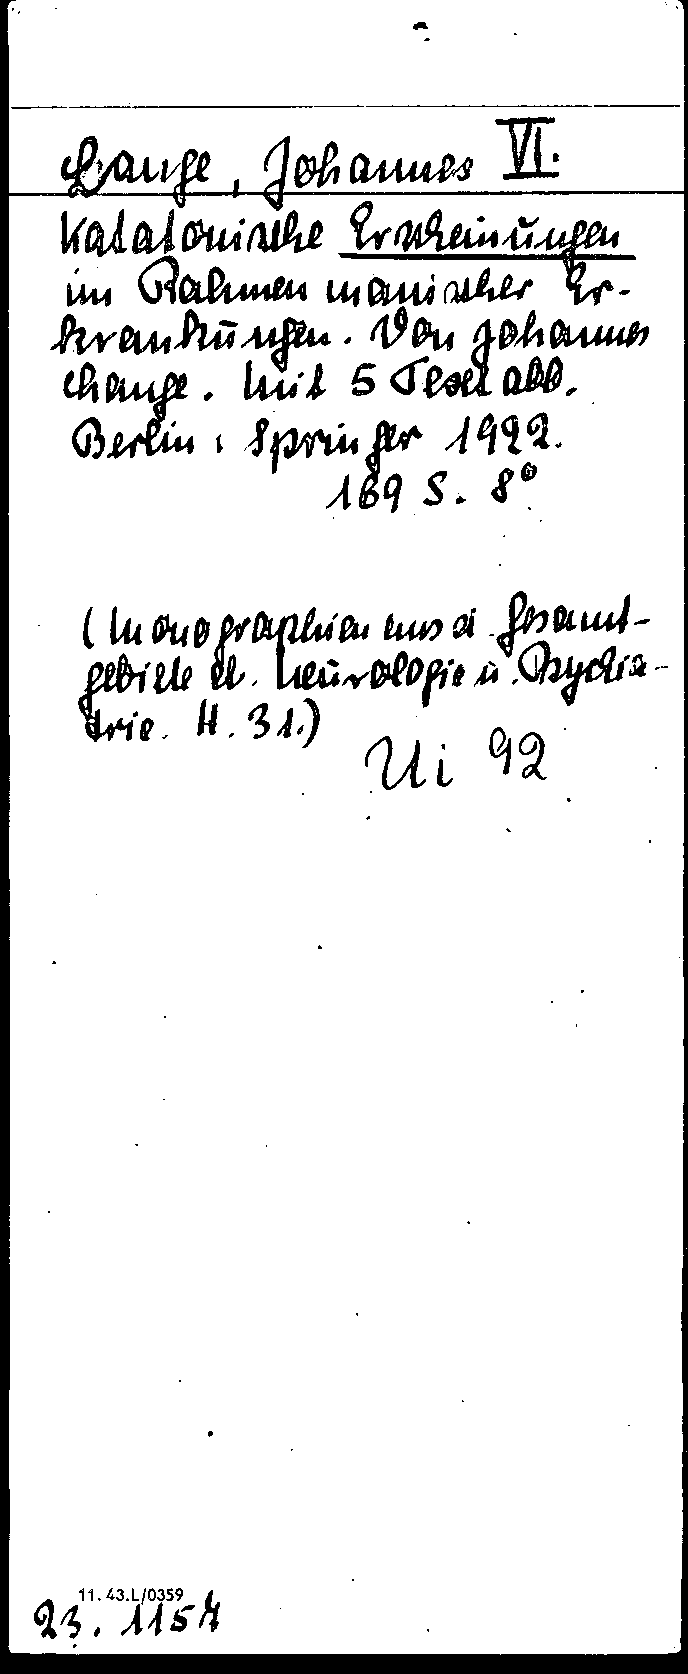 Lange, Johannes VI.
Katatonische Erscheinungen
im Rahmen manischer Er-
krankungen. Von Johannes
Lange. Mit 5 Textabb.
Berlin: Springer 1922.
169 S. 8°
(Monographien aus d. Gesamt-
gebiete d. Neurologie u. Psychia-
trie. H. 31.)
Ui 92
11. 43.L/0359
23. 1157